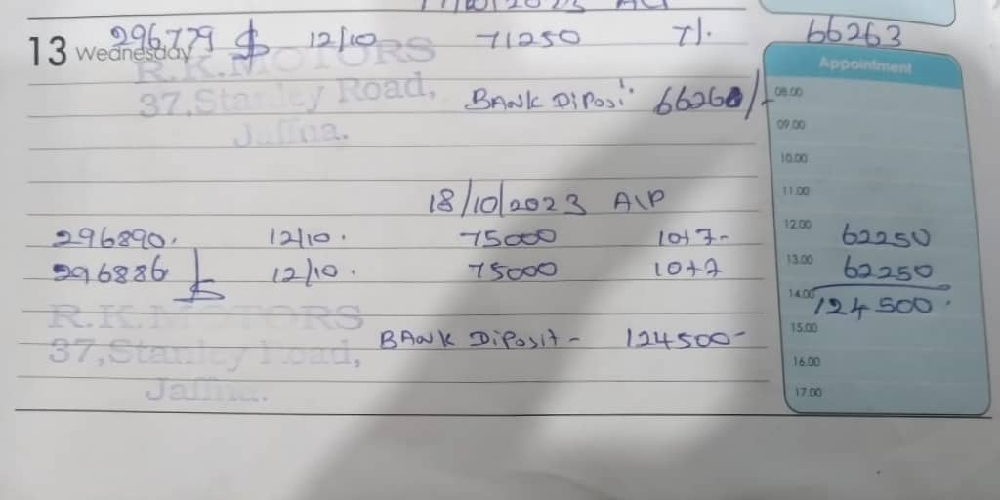 296779 $ 12/10 71250 7%. 66263
13 Wednesday
R.K.MOTORS
37,Stanley Road,
Jaffna.
BANK Diposi: 66260/-
Appointment
08.00
09.00
10.00
11.00
18/10/2023 A\P
12.00
296890. 12/10. 75000 10+7- 62250
13.00
296886 12/10. 75000 10+7 62250
14.00
124500.
R.K.MOTORS
37,Stanley Road,
Jaffna.
BANK Diposit - 124500-
15.00
16.00
17.00